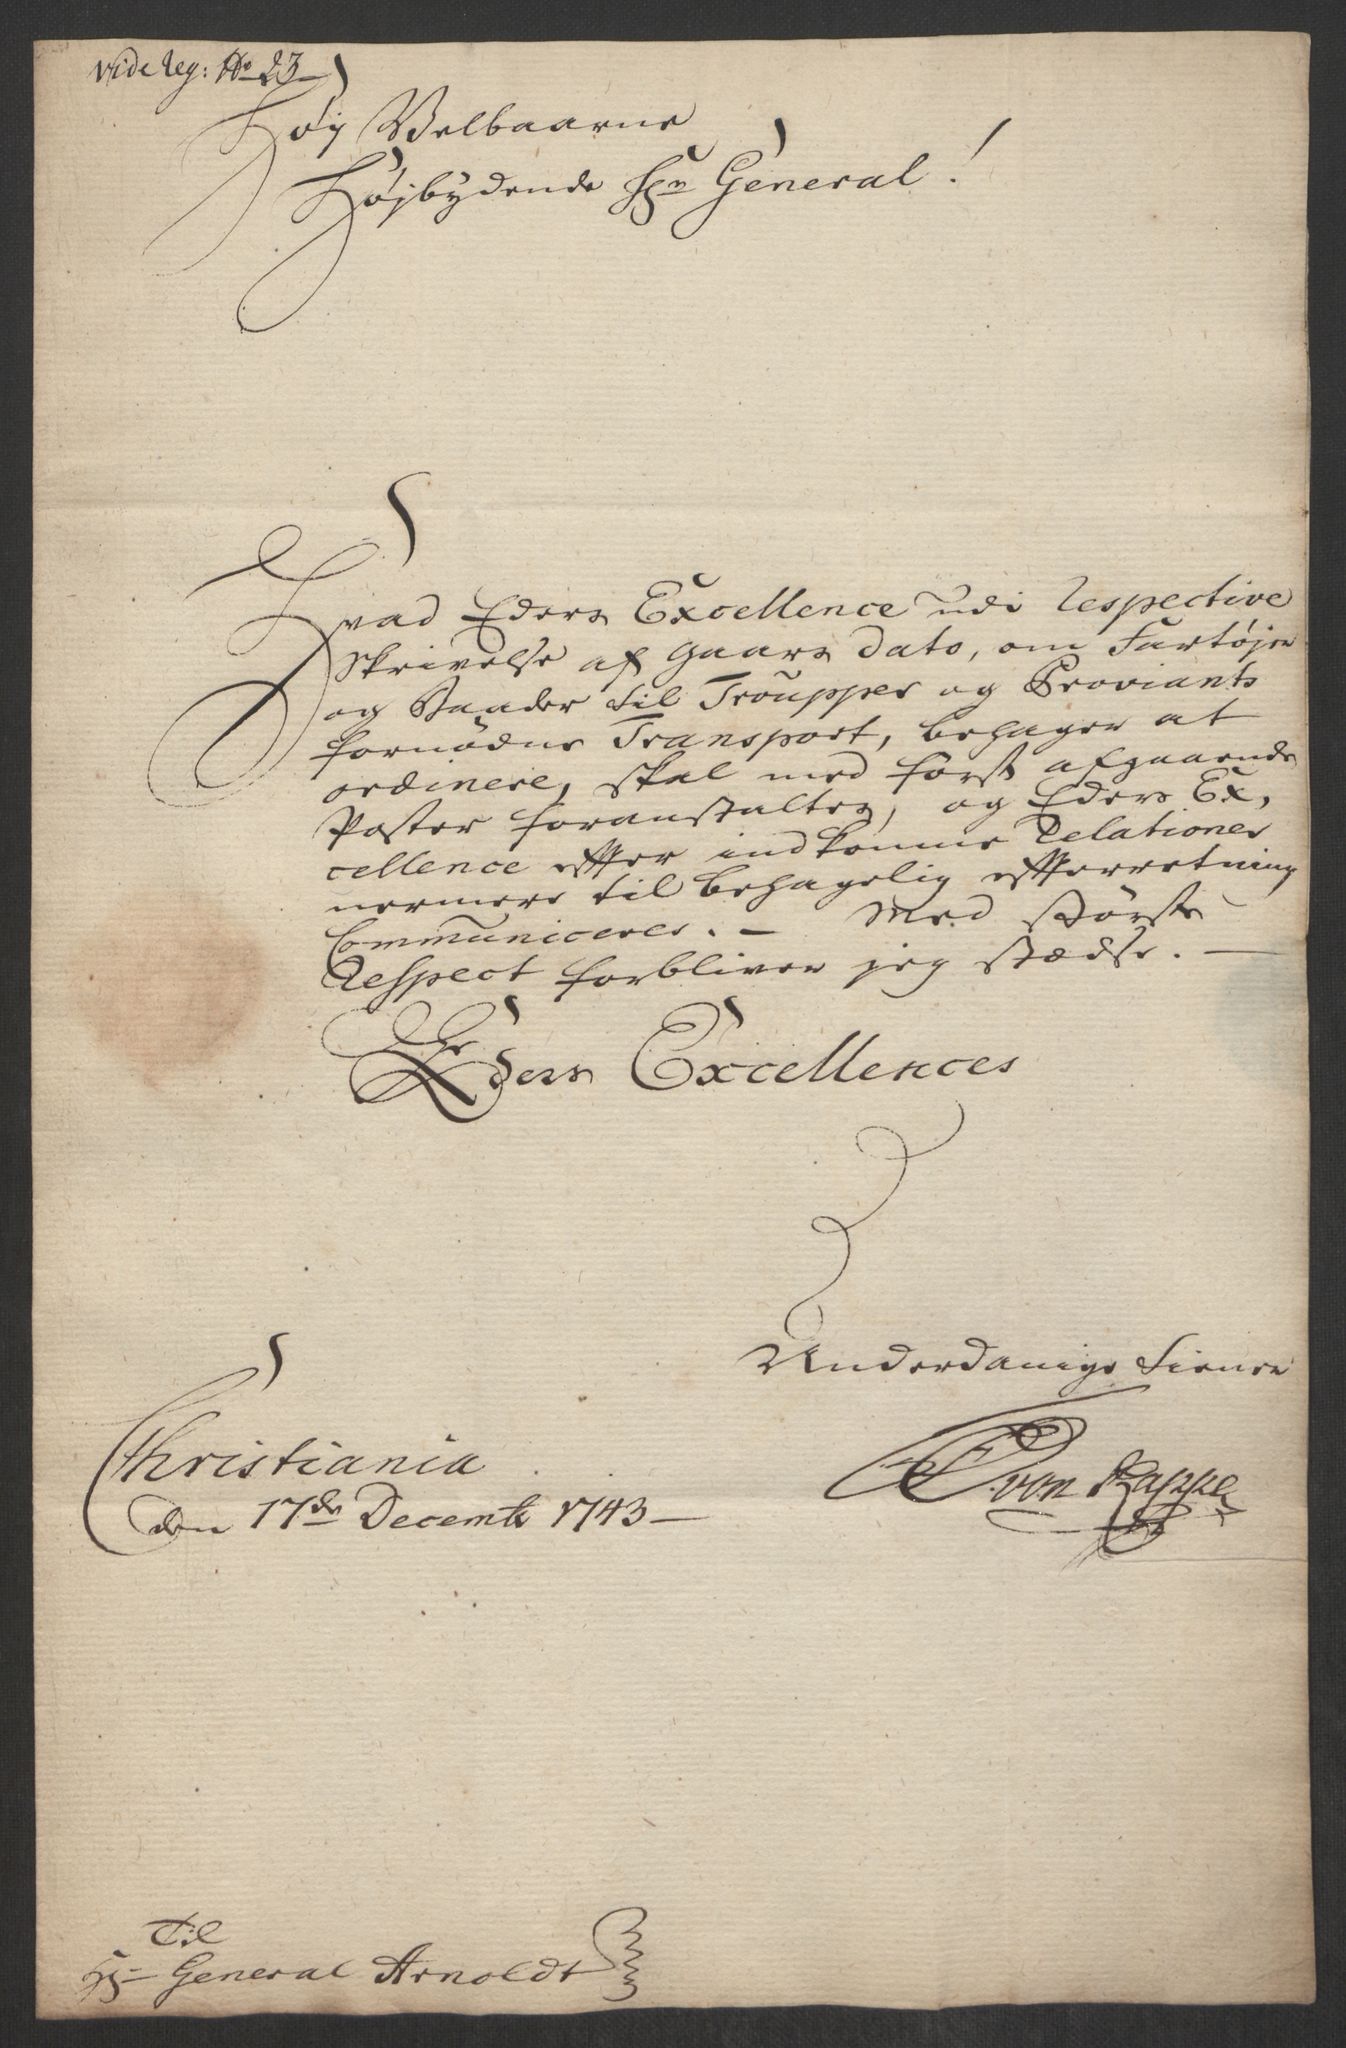 vide Reg: No 23
Høy Velbaarne
Højbydende Hr. General!
Hvad Eders Excellence udi Respective
Skrivelse af Gaars dato, om Fartøjer
og Baader til Troupper og Proviants
fornødne Transport, behager at
ordinere, skal med først afgaaende
Poster foranstaltes, og Eders Ex,
cellence effter indkomne Relationer
nermere til behagelig effterretning
Communiceres. – Med største
Respect forbliver jeg stædse. –
Eders Excellences
Underdanige tiener
von Rappe
Christiania
den 17de Decembr 1743 –
Til
Hr General Arnoldt